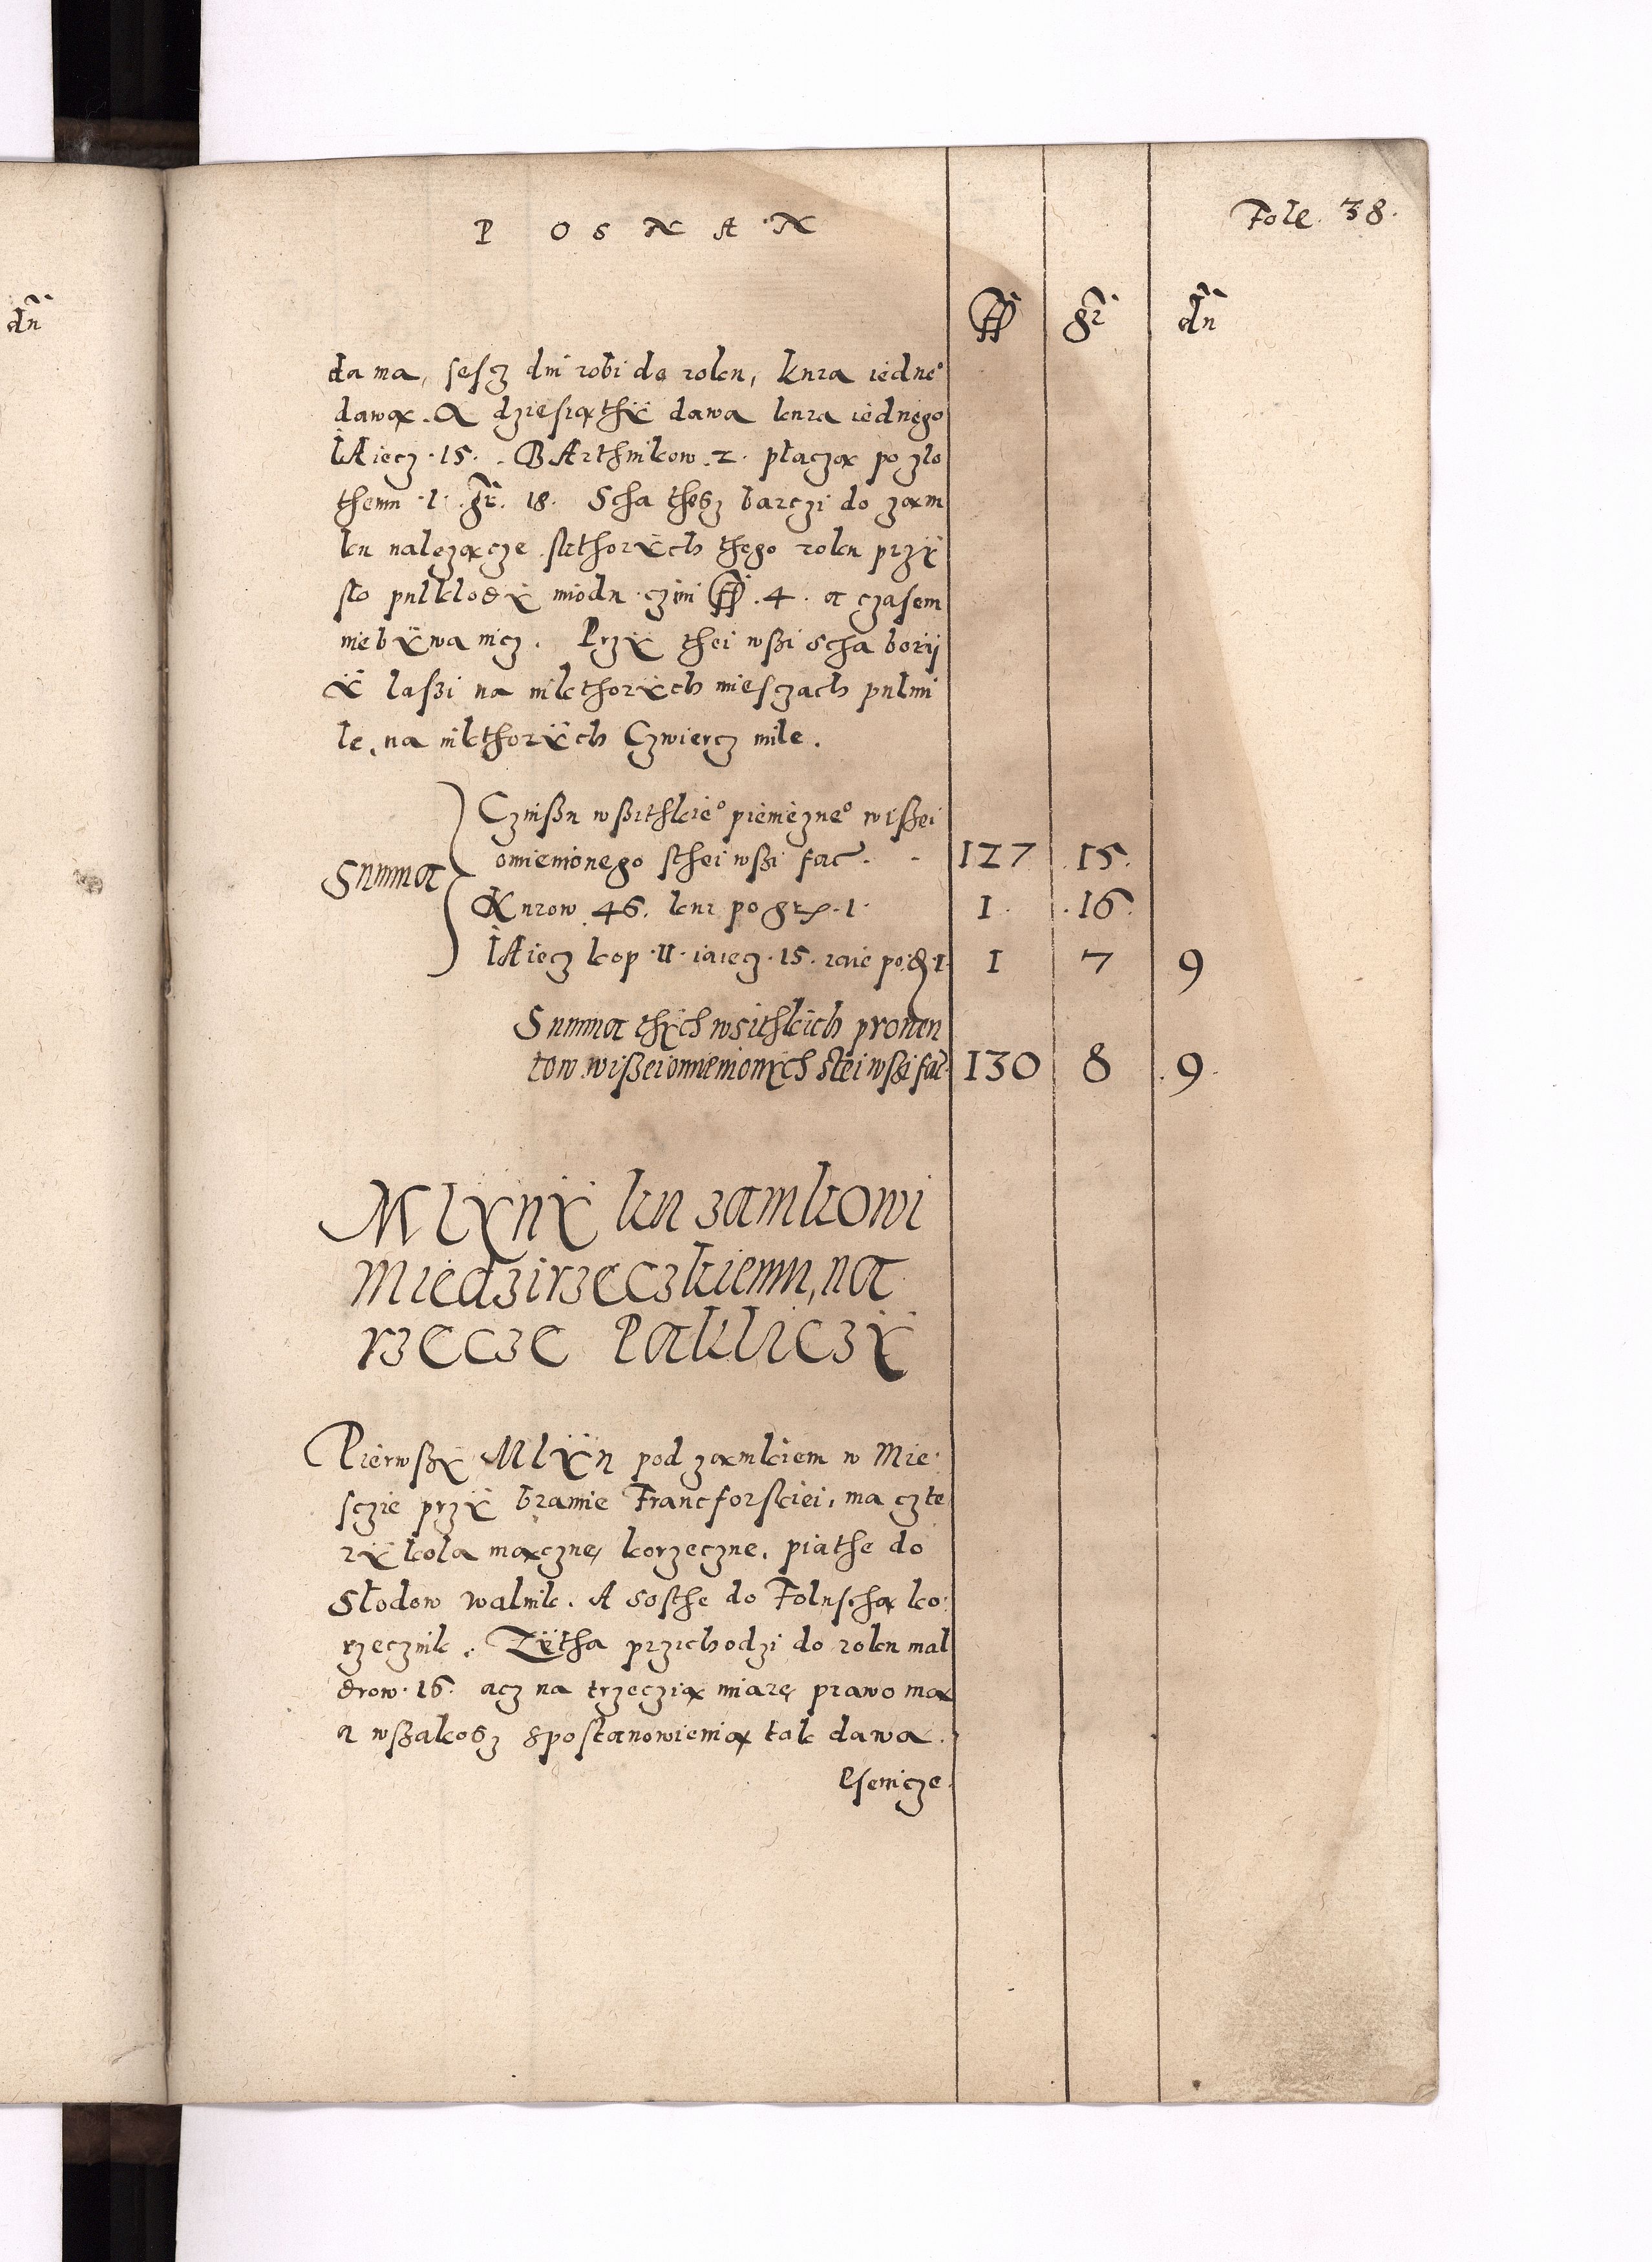 POSNAN
Fole. 38.
ff gr dn
dn
da ma, sescz dni robi do roku, kura iedne°
dawa̧. A dziesia̧thÿ dawa kura iednego
IAiecz .15. BArthnikow .2. płacza̧ po zło
themu .1. gr. 18. Scha thesz barczi do zam
ku należa̧cze, skthorÿch thego roku przÿ
sło pulkłodÿ miodu czini ff .4. a czasem
niebÿwa nicz. Przÿ thei wßi scha borij
ÿ laßi na niktorÿch miesczach pulmi
le, na nikthorÿch Czwiercz mile.
Summa
Czinßu wßithkie° pieniężne° wißei
omienionego sthei wßi fac. 127 .15.
Kurow 46. kur po gr .1. 1. .16.
IAiecz kop .11. iaiecz .15. raie po d 1. 1 7 9
Summa thÿch wsithkich prouen
tow wißeiomienionÿch stei wßi fac. 130 8 9
Mlÿnÿ ku zamkowi
Miedzirzeczkiemu, na
rzecze Pakliczÿ
Pierwßÿ Mlÿn pod zamkiem w Mie
sczie przÿ bramie Francforskiei, ma czte
rÿ koła ma̧czne, korzeczne, piathe do
Słodow walnik. A sosthe do Foluscha̧ ko
rzecznik. Zÿtha przichodzi do roku mal
drow .16. acz na trzeczia̧ miarę prawo ma̧
a wßakosz spostanowienia̧ tak dawa.
Psenicze